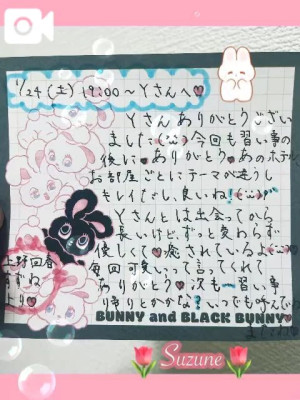 1/24(土)19:00〜Yさんへ♥
Yさんありがとうござい
ました(･ω･)今回も習い事の
後に♥ありがとう♥あのホテル
お部屋ごとにテーマが違うし
キレイだし良いね!(･ω･)♡
Yさんとは出会ってから
長いけど、ずっと変わらず
優しくて♥癒されているよ(･ω･)
毎回可愛いって言ってくれて
ありがとう♥次も習い事
いつでも呼んで
上野回春
すずね
より♥
BUNNY and BLACK BUNNY
Suzune